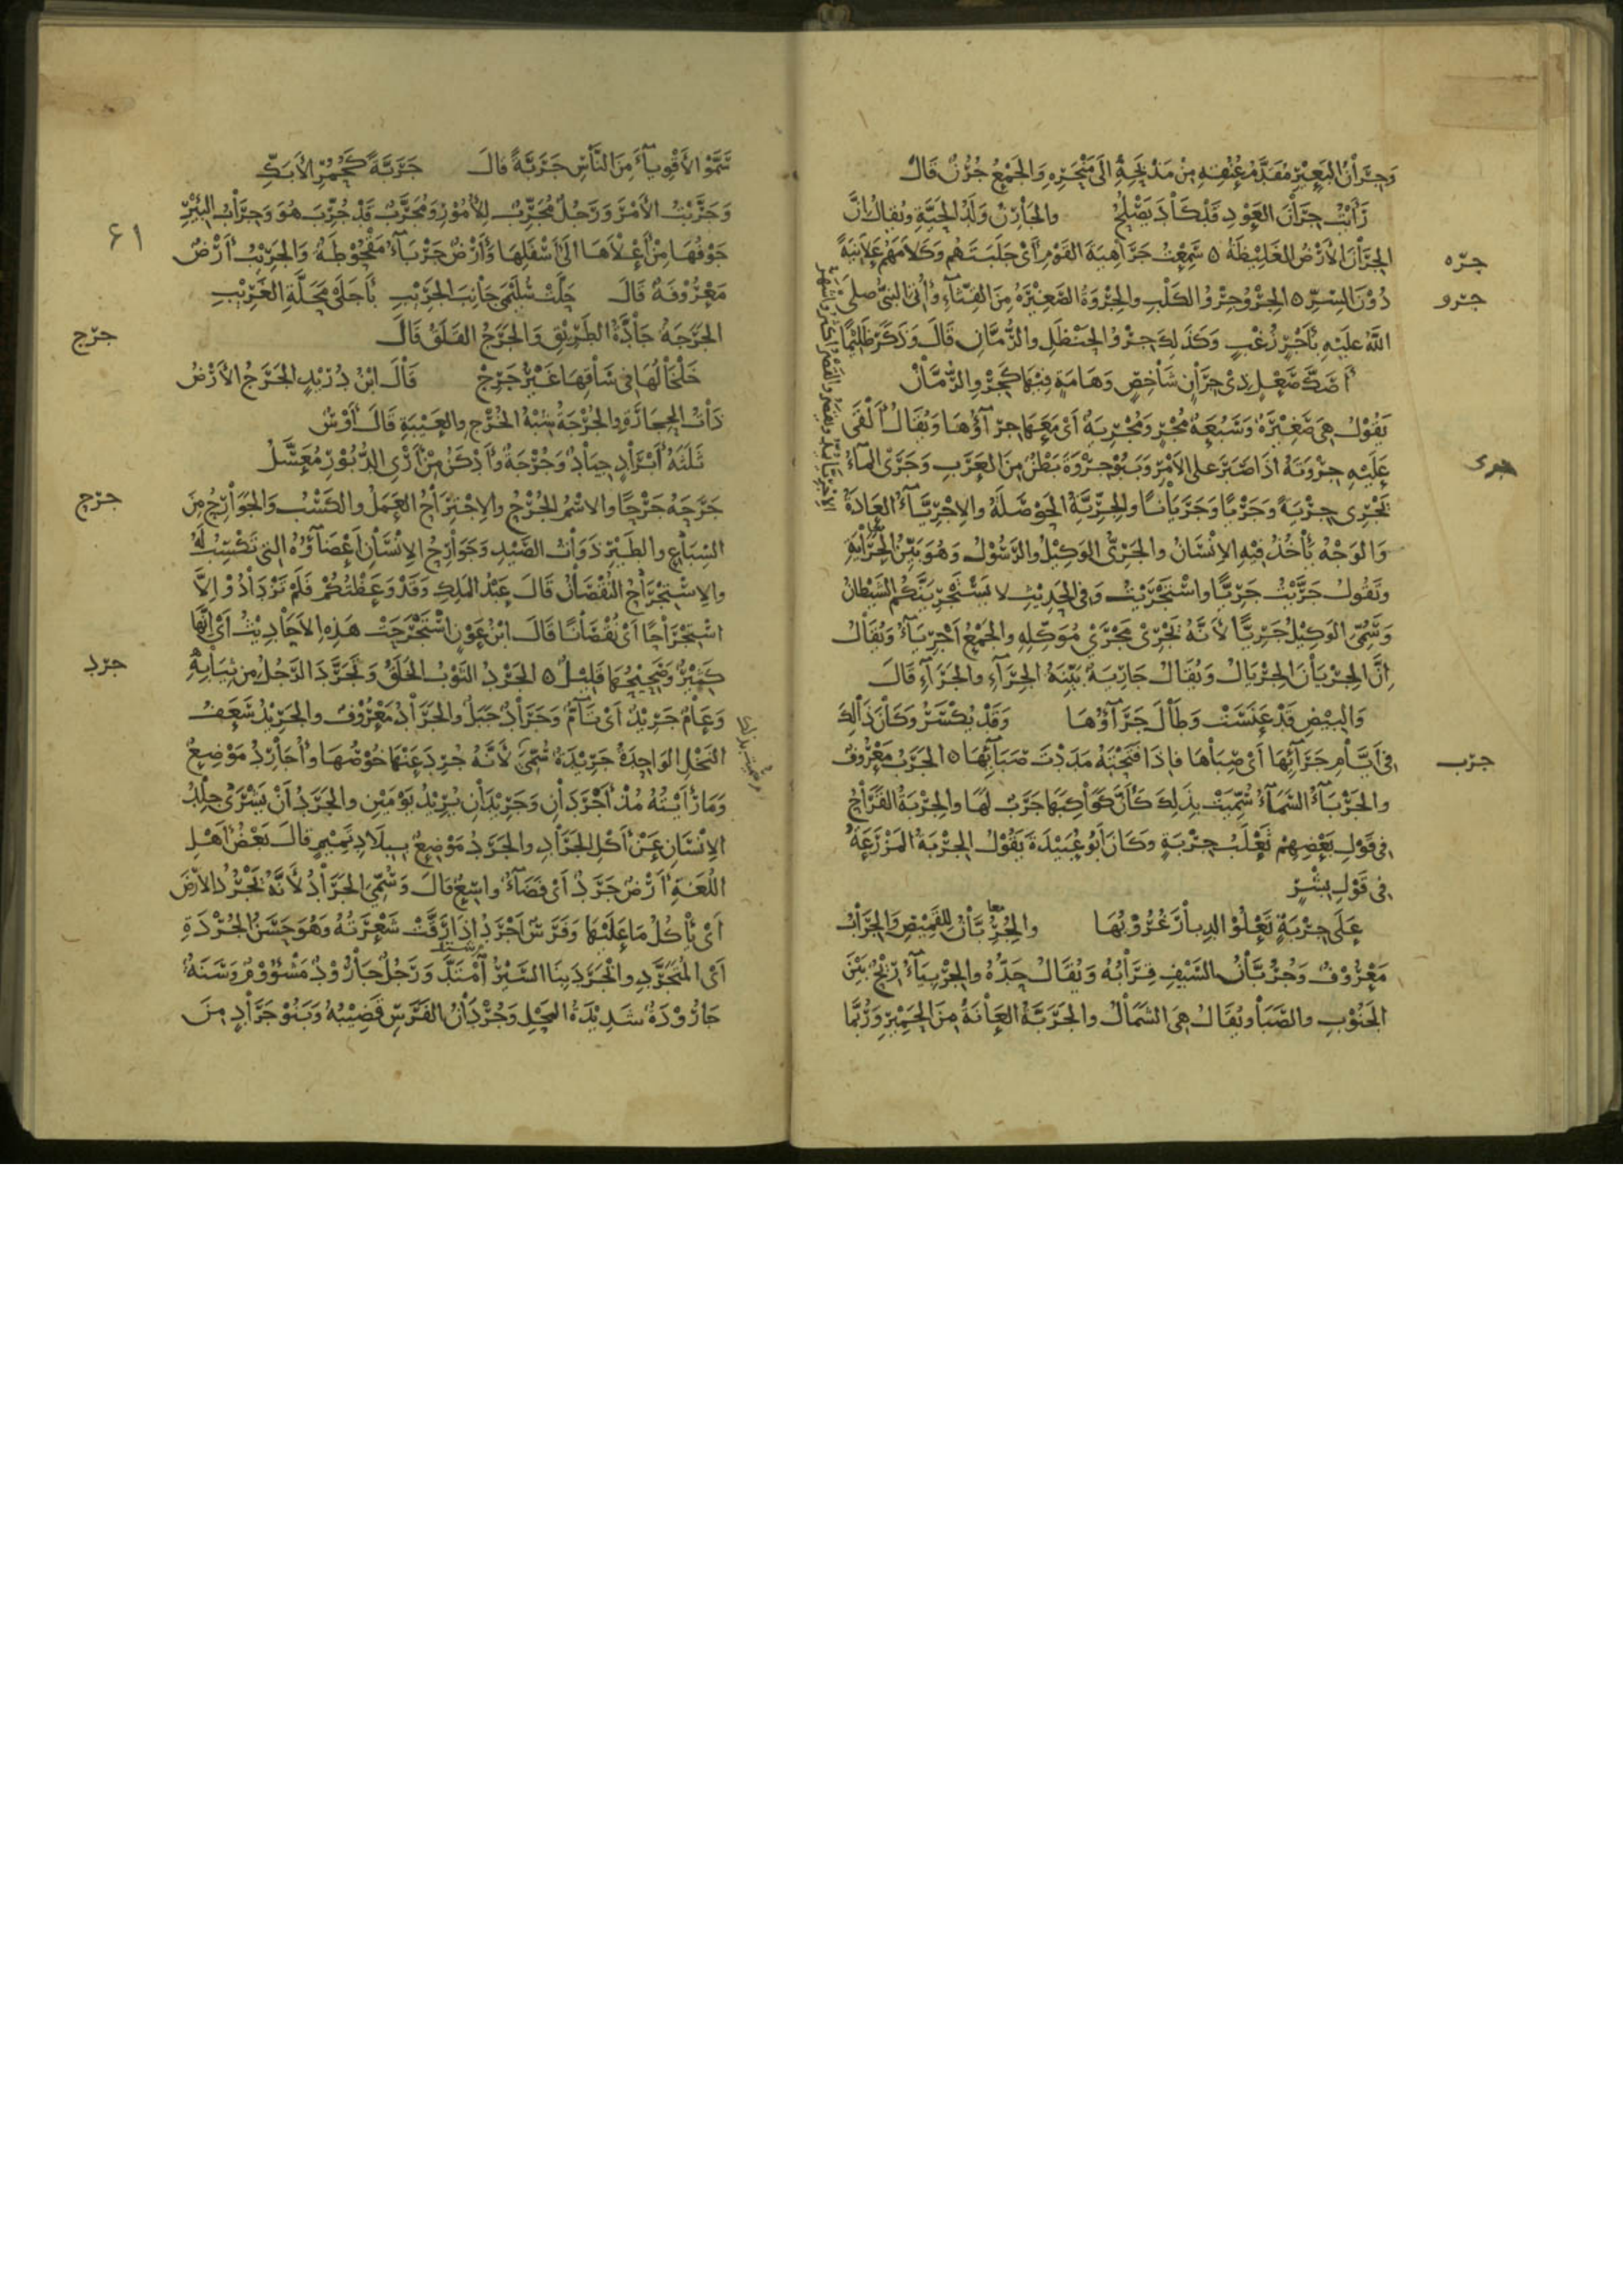 وَجِرَانُ البَعِيرِ مُقَدَّمُ عُنُقِهِ مِنْ مَذْبَحِهِ إِلَى مَنْحَرِهِ وَالجَمْعُ جُرُنٌ قَالَ
رَأَيْتُ جِرَانَ العَوْدِ قَدْ كَادَ يَصْلُحُ والجَارِنُ وَلَدُ الحَيَّةِ وَيُقَالُ إِنَّ
جره
الجَرَنَ الأَرْضُ الغَلِيظَةُ ه سَمِعْتُ جَرَاهِيَةَ القَوْمِ أَيْ جَلَبَتَهُمْ وَكَلَامَهُمْ عَلَانِيَةً
جرو
دُوْنَ السِّرِّ ه الجِرْوُ جِرْوُ الكَلْبِ والجِرْوَةُ الصَّغِيرَةُ مِنَ القِثَّاءِ وَأُتِيَ النَّبِيُّ صلى
اللهُ عَلَيْهِ بِأَجْرٍ زُغْبٍ وَكَذَلِكَ جِرْوُ الحَنْظَلِ والرُّمَّانِ قَالَ وَذَكَرَ ظَلِيْمًا
أَصَكَّ صَعْلٍ ذِي جِرَانٍ شَاخِصٍ وَهَامَةٍ فِيْهَا كَجِرْوِ الرُّمَّانْ
يَقُوْلُ هِيَ صَغِيرَةٌ وَسَبُعَةٌ مُجْرٍ وَمُجْرِيَةٌ أَيْ مَعَهَا جِرَآؤُهَا وَيُقَالُ أَلْقَى
جرى
عَلَيْهِ جِرْوَتَهُ اذَا صَبَرَ على الأَمْرِ وَبَنُوْ جِرْوَةَ بَطْنٌ مِنَ العَرَبِ وَجَرَى المآءُ
يَجْرِى جِرْيَةً وَجَرْيًا وَجَرَيَانًا والجِرِّيَّةُ الحَوْصَلَةُ والإِجْرِيَّآءُ العَادَةُ
وَالوَجْهُ يَأْخُذُ فِيْهِ الإِنْسَانُ والجَرِىُّ الوَكِيْلُ والرَّسُوْلُ وَهُوَ بَيِّنُ الجَرَايَةِ
وَتَقُولُ جَرَّيْتُ جَرِيًّا واسْتَجْرَيْتُ وَفِى الحَدِيْثِ لا يَسْتَجْرِيَنَّكُمُ الشَّيْطَانُ
وَسُمِّىَ الوَكِيْلُ جَرِيًّا لأَنَّهُ يَجْرِىْ مَجْرَىْ مُوَكِّلِهِ والجَمْعُ أَجْرِيَآءُ وَيُقَالُ
إِنَّ الجِرْيَانَ الجِرْيَالُ وَيُقَالُ جَارِيَةٌ بَيِّنَةُ الجِرَآءِ والجَرَآءِ قَالَ
وَالبِيْضِ قَدْ عَنَسَتْ وَطَالَ جَرَآؤُهَا وَقَدْ يُكْسَرُ وَكَانَ ذَالِكَ
جرب
فِى أَيَّامِ جَرَآئِهَا أَىْ صِبَاهَا فَإِذَا فَتَحْتَهُ مَدَدْتَ صَبَآئِهَا ه الجَرَبُ مَعْرُوفٌ
والجَرْبَآءُ السَّمَآءُ سُمِّيَتْ بِذَلِكَ كَأَنَّ كَوَاكِبَهَا جَرَبٌ لَهَا والجِرْبَةُ القَرَاحُ
فِى قَوْلِ بَعْضِهِمْ ثَعْلَبُ جِرْبَةٍ وَكَانَ أَبُو عُبَيْدَةَ يَقُوْلُ الجِرْبَةُ المَزْرَعَةُ
فِى قَوْلِ بِشْرٍ
عَلَى جِرْبَةٍ تَعْلُوْ الدِبَارَ غُرُوْبُهَا والجُرُبَّانُ لِلْقَمِيْصِ وَالجِرَابُ
مَعْرُوْفٌ وَجُرُبَّانُ السَّيْفِ قِرَابُهُ وَيُقَالُ حَدُّهُ والجِرْبِيَآءُ رِيْحٌ بَيْنَ
الجَنُوْبِ والصَّبَا وَيُقَالُ هِىَ الشَمَالُ والجَرَبَّةُ العَانَةُ مِنَ الحَمِيْرِ وَرُبَّمَا
سَمَّوْا الأَقْوِيَآءَ مِنَ النَّاسِ جَرَبَّةً قَالَ جَرَبَّةٌ كَحُمُرِ الأَبَكِّ
٦١
وَجَرَّبْتُ الأَمْرَ وَرَجُلٌ مُجَرِّبٌ لِلأُمُوْرِ وَمُجَرَّبٌ قَدْ جُرِّبَ هُوَ وَجِرَابُ البِئْرِ
جَوْفُهَا مِنْ أَعْلَاهَا الَى أَسْفَلِهَا وَأَرْضٌ جَرْبَآءُ مَقْحُوْطَةٌ وَالجَرِيْبُ أَرْضٌ
مَعْرُوْفَةٌ قَالَ حَلَّتْ سُلَيْمَى جَانِبَ الجَرِيْبِ بِأَجَلَى مَحَلَّةَ الغَرِيْبِ
جرج
الجَرَجَةُ جَادَّةُ الطَرِيْقِ وَالجَرَجُ القَلَقُ قَالَ
خَلْخَالُهَا فِى سَاقِهَا غَيْرُ جَرِجْ قَالَ ابْنُ دُرَيْدٍ الجَرَجُ الأَرْضُ
ذَاتُ الحِجَارَةِ والجُرْجَةُ شِبْهُ الخُرْجِ والعَيْبَةِ قَالَ أَوْسٌ
ثَلَثَةُ أَبْرَادٍ جِيَادٌ وَجُرْجَةٌ وَأَدْكَنُ مِنْ أَرْىِ الدَّبُوْرِ مُعَسَّلُ
جرح
جَرَحَهُ جَرْحًا والاسْمُ الجُرْحُ والإِجْتِرَاحُ العَمَلُ والكَسْبُ وَالجَوَارِحُ مِنَ
السِبَاعِ والطَيْرِ ذَوَاتُ الصَّيْدِ وَجَوَارِحُ الإِنْسَانِ أَعْضَآؤُهُ التِى تَكْتَسِبُ لَهُ
والاِسْتِجْرَاحُ النُقْصَانُ قَالَ عَبْدُ المَلِكِ وَقَدْ وَعَظْتُكُمْ فَلَمْ تَزْدَادُوْا إِلاَّ
اسْتِجْرَاحًا أَىْ نُقْصَانًا قَالَ ابْنُ عَوْنٍ اسْتَجْرَحَتْ هَذِهِ الأَحَادِيْثُ أَىْ أَنَّهَا
جرد
كَثِيْرٌ وَصَحِيْحُهَا قَلِيْلٌ ه الجَرْدُ الثَوْبُ الخَلَقُ وَتَجَرَّدَ الرَّجُلُ مِنْ ثِيَابِهِ
وَعَامٌ جَرِيْدٌ أَىْ تَآمٌّ وَجَرَادٌ جَبَلٌ والجَرَادُ مَعْرُوْفٌ والجَرِيْدُ سَعَفُ
النَخْلِ الوَاحِدَةُ جَرِيْدَةٌ سُمِّىَ لأَنَّهُ جُرِدَ عَنْهَا خُوْصُهَا وأُجَارِدُ مَوْضِعٌ
وَمَا رَأَيْتُهُ مُذْ أَجْرَدَانِ وَجَرِيْدَانِ يُرِيْدُ يَوْمَيْنِ والجَرَدُ أَنْ يَشْرَى جِلْدُ
الاِنْسَانِ عَنْ أَكْلِ الجَرَادِ والجَرَدُ مَوْضِعٌ بِبِلَادِ تَمِيْمٍ قَالَ بَعْضُ أَهْلِ
اللُغَةِ أَرْضٌ جَرَدٌ أَىْ فَضَآءٌ وَاسِعٌ قَالَ وَسُمِّىَ الجَرَادُ لأَنَّهُ يَجْرُدُ الأَرْضَ
أَىْ يَأْكُلُ مَا عَلَيْهَا وَفَرَسٌ أَجْرَدُ اذَا رَقَّتْ شَعْرَتُهُ وَهُوَ حَسَنُ الجُرْدَةِ
أَىْ المُتَجَرَّدِ وانْجَرَدَ بِنَا السَّيْرُ امْتَدَّ وَرَجُلٌ جَارُوْدٌ مَشْؤُوْمٌ وَسَنَةٌ
جَارُوْدَةٌ شَدِيْدَةُ المَحْلِ وَجُرْدَانُ الفَرَسِ قَضِيْبُهُ وَبَنُوْ جَرَادٍ مِنَ